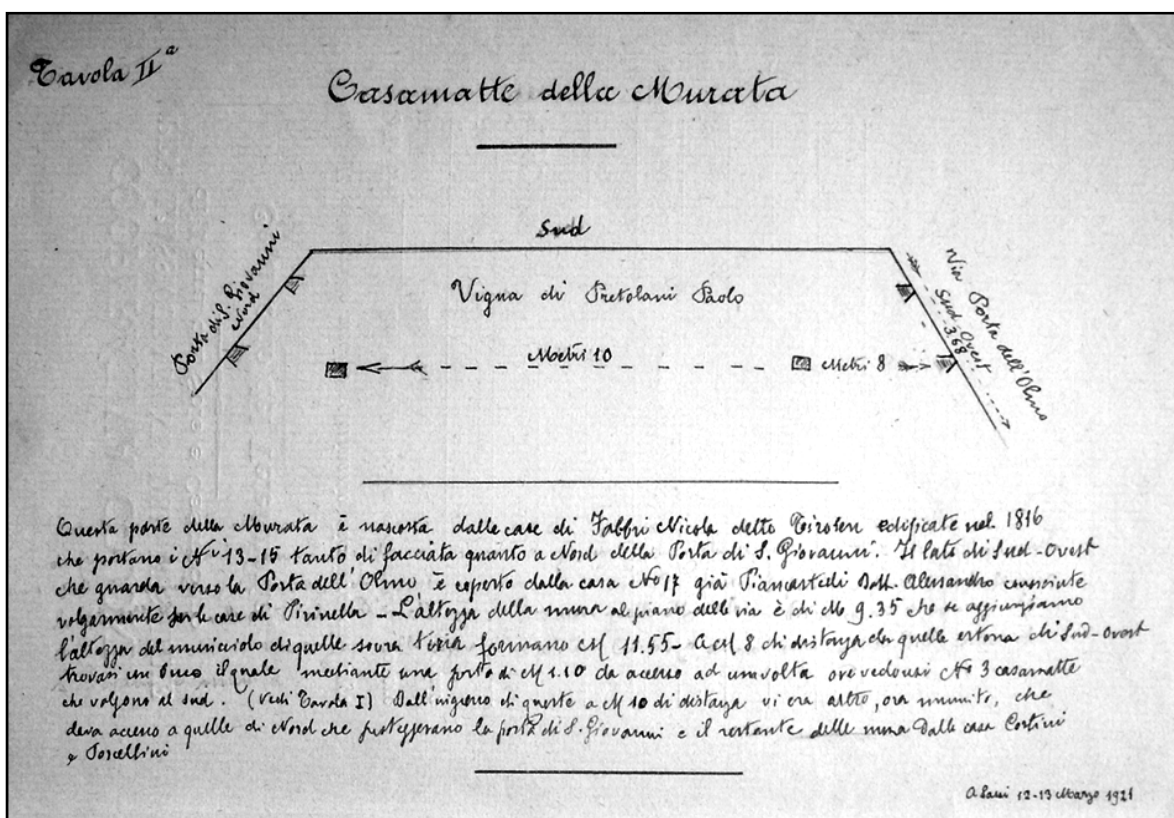 Tavola IIª
Casamatte della Murata
Sud
Porta di S. Giovanni
Nord
Vigna di Pretolani Paolo
Via Porta dell'Olmo
Sud-Ovest
3.68
Metri 10
Metri 8
Questa parte della Murata è nascosta dalle case di Fabbri Nicola detto edificate nel 1816
che portano i Nⁱ 13-15 tanto di facciata quanto a Nord della Porta di S. Giovanni. Il lato di Sud-Ovest
che guarda verso la Porta dell'Olmo è coperto dalla casa No 17 già Piancastelli Dott. Alessandro
volgarmente per le case di Pirinella - L'altezza della mura al piano delle via è di M 9.35 che se aggiungiamo
l'altezza del di quelle sovra formano M 11.55 - A M 8 di distanza da quelle esterna di Sud-Ovest
trovasi un buco il quale mediante una porta di M 1.10 da accesso ad una volta ove vedonsi No 3 casamatte
che volgono al sud. (Vedi Tavola I) Dall'ingresso di queste a M 10 di distanza vi era altro, ora munito, che
dava accesso a quelle di Nord che proteggevano la porta di S. Giovanni e il restante delle mura dalle case
e Porcellini
12-13 Marzo 1921